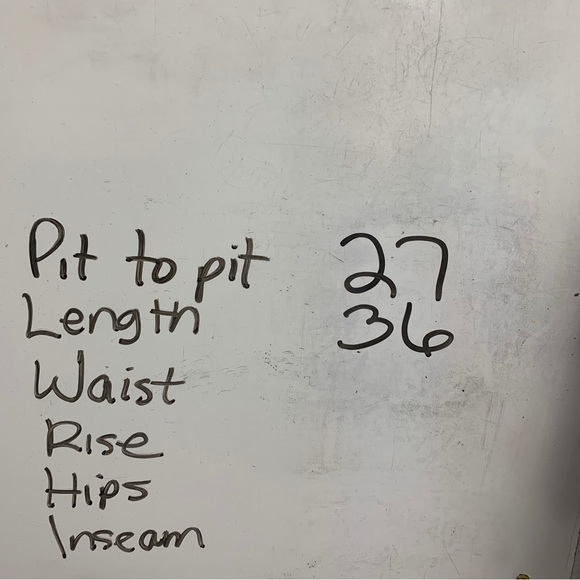 Pit to pit 27
Length 36
Waist
Rise
Hips
Inseam